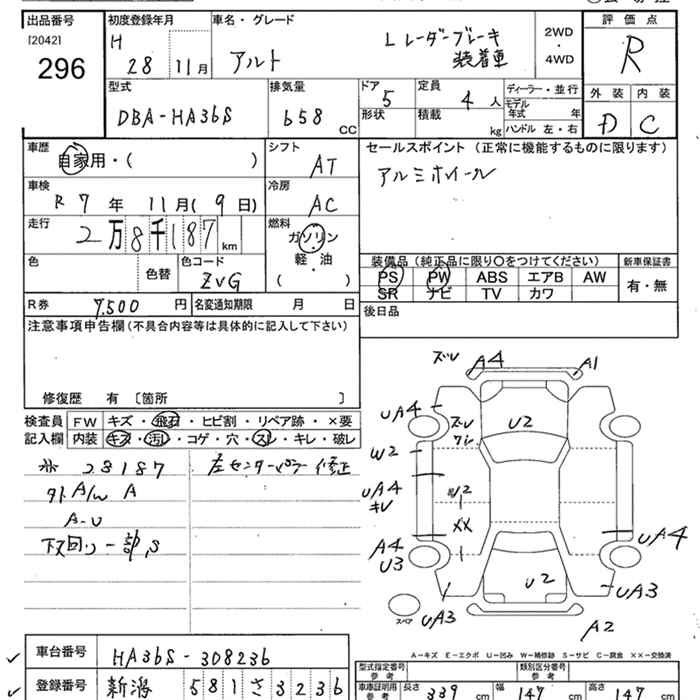 出品番号 初度登録年月 車名・グレード 評価点
[2042] H 28 11月 アルト Lレーダーブレーキ装着車 2WD・4WD R
296
型式 排気量 ドア 定員 ディーラー・並行 外装 内装
DBA-HA36S 658 CC 5 4人 モデル年式 年 D C
形状 積載 kg ハンドル 左・右
車歴 シフト セールスポイント (正常に機能するものに限ります)
自家用・( ) AT アルミホイール
車検 冷房
R 7年 11月(9日) AC
走行 燃料
2万8千187km ガソリン・軽・油 ( )
色 色替 色コード ZVG 装備品 (純正品に限り○をつけてください) 新車保証書
PS PW ABS エアB AW 有・無
SR ナビ TV カワ
R券 7,500円 名変通知期限 月 日
後日品
注意事項申告欄 (不具合内容等は具体的に記入して下さい)
修復歴 有 〔箇所 〕
検査員記入欄 FW キズ・飛石・ヒビ割・リペア跡・×要
内装 キズ・汚レ・コゲ・穴・スレ・キレ・破レ
28187 左センターピラー修正
外A/W A
A-U
下回り一部S
ズレ A4 A1
UA4 ズレ U2
W2
UA4 キレ U2
XX
A4 U3 UA4
U2
UA3 UA3
スペア A2
A-キズ E-エクボ U-凹み W-補修跡 S-サビ C-腐食 ××-交換済
車台番号 HA36S-308236
型式指定番号 参考 類別区分番号 参考
登録番号 新潟 581 さ 3236
車庫証明用 参考 長さ 339cm 幅 147cm 高さ 147cm